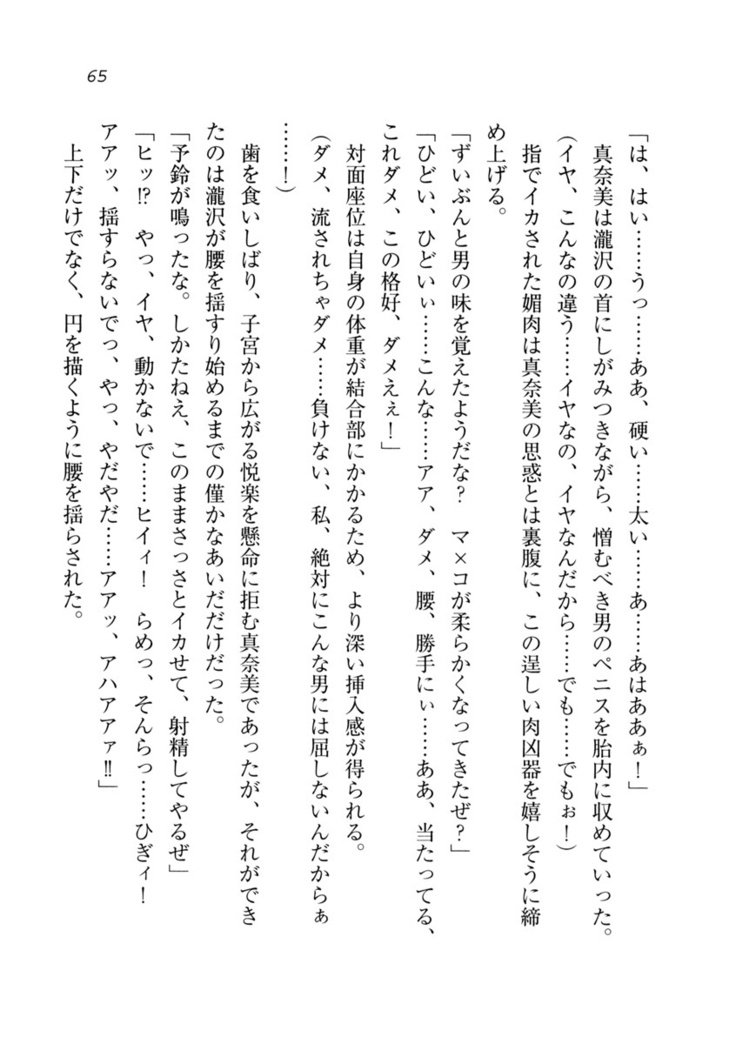 65
「は、はい……うっ……ああ、硬い……太い……あ……あはああぁ！」
真奈美は瀧沢の首にしがみつきながら、憎むべき男のペニスを胎内に収めていった。
（イヤ、こんなの違う……イヤなの、イヤなんだから……でも……でもぉ！）
指でイカされた媚肉は真奈美の思惑とは裏腹に、この逞しい肉凶器を嬉しそうに締
め上げる。
「ずいぶんと男の味を覚えたようだな？　マ×コが柔らかくなってきたぜ？」
「ひどい、ひどいぃ……こんな……アア、ダメ、腰、勝手にぃ……ああ、当たってる、
これダメ、この格好、ダメえぇ！」
対面座位は自身の体重が結合部にかかるため、より深い挿入感が得られる。
（ダメ、流されちゃダメ……負けない、私、絶対にこんな男には屈しないんだからぁ
……！）
歯を食いしばり、子宮から広がる悦楽を懸命に拒む真奈美であったが、それができ
たのは瀧沢が腰を揺すり始めるまでの僅かなあいだだけだった。
「予鈴が鳴ったな。しかたねえ、このままさっさとイカせて、射精してやるぜ」
「ヒッ!?　やっ、イヤ、動かないで……ヒイィ！　らめっ、そんらっ……ひぎィ！
アアッ、揺すらないでっ、やっ、やだやだ……アアッ、アハアアァ!!」
上下だけでなく、円を描くように腰を揺らされた。